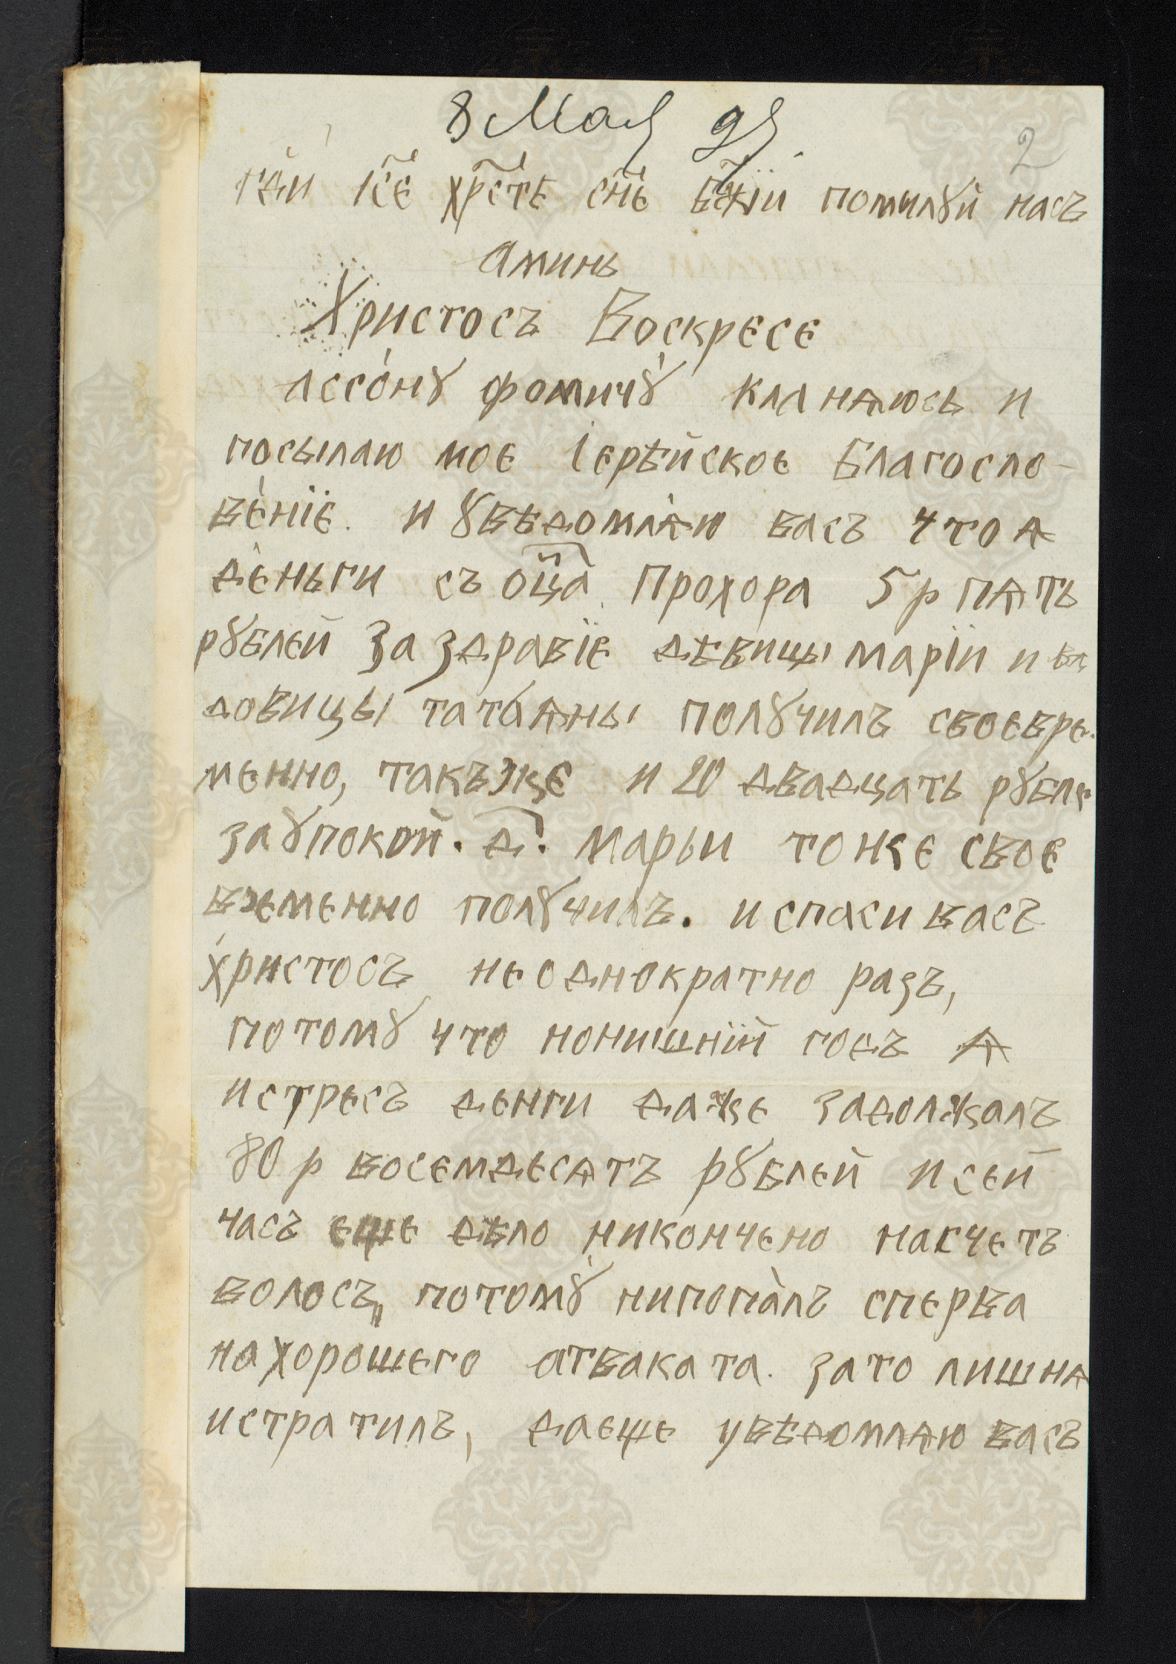 8 Мая 99 2
гди ісе хрсте сне бжіи помилꙋй насъ
Аминь
Христосъ Воскресе
Ассонꙋ фомичꙋ кланѧюсь и
посылаю мое Іерѣйское Благосло-
веніе. и ꙋвѣдомлѧю васъ что ѧ
деньги съ оца Прохора 5 р пѧть
рꙋблей За здравіе дѣвицы маріи и
довицы татьѧны полꙋчилъ своевре-
менно, такъже и 20 двадцать рꙋбле
за ꙋпокой. д. марьи тоже свое
вземенно полꙋчилъ. и спаси васъ
христосъ неоднократно разъ,
потомꙋ что нонишній годъ ѧ
истресъ денги даже задолжалъ
80 р восемдесѧтъ рꙋблей и сей
часъ еще дѣло никончено насчетъ
волосъ, потомꙋ нипопалъ сперва
на хорошего атваката. зато лишнѧ
истратилъ, даеще увѣдомлѧю васъ